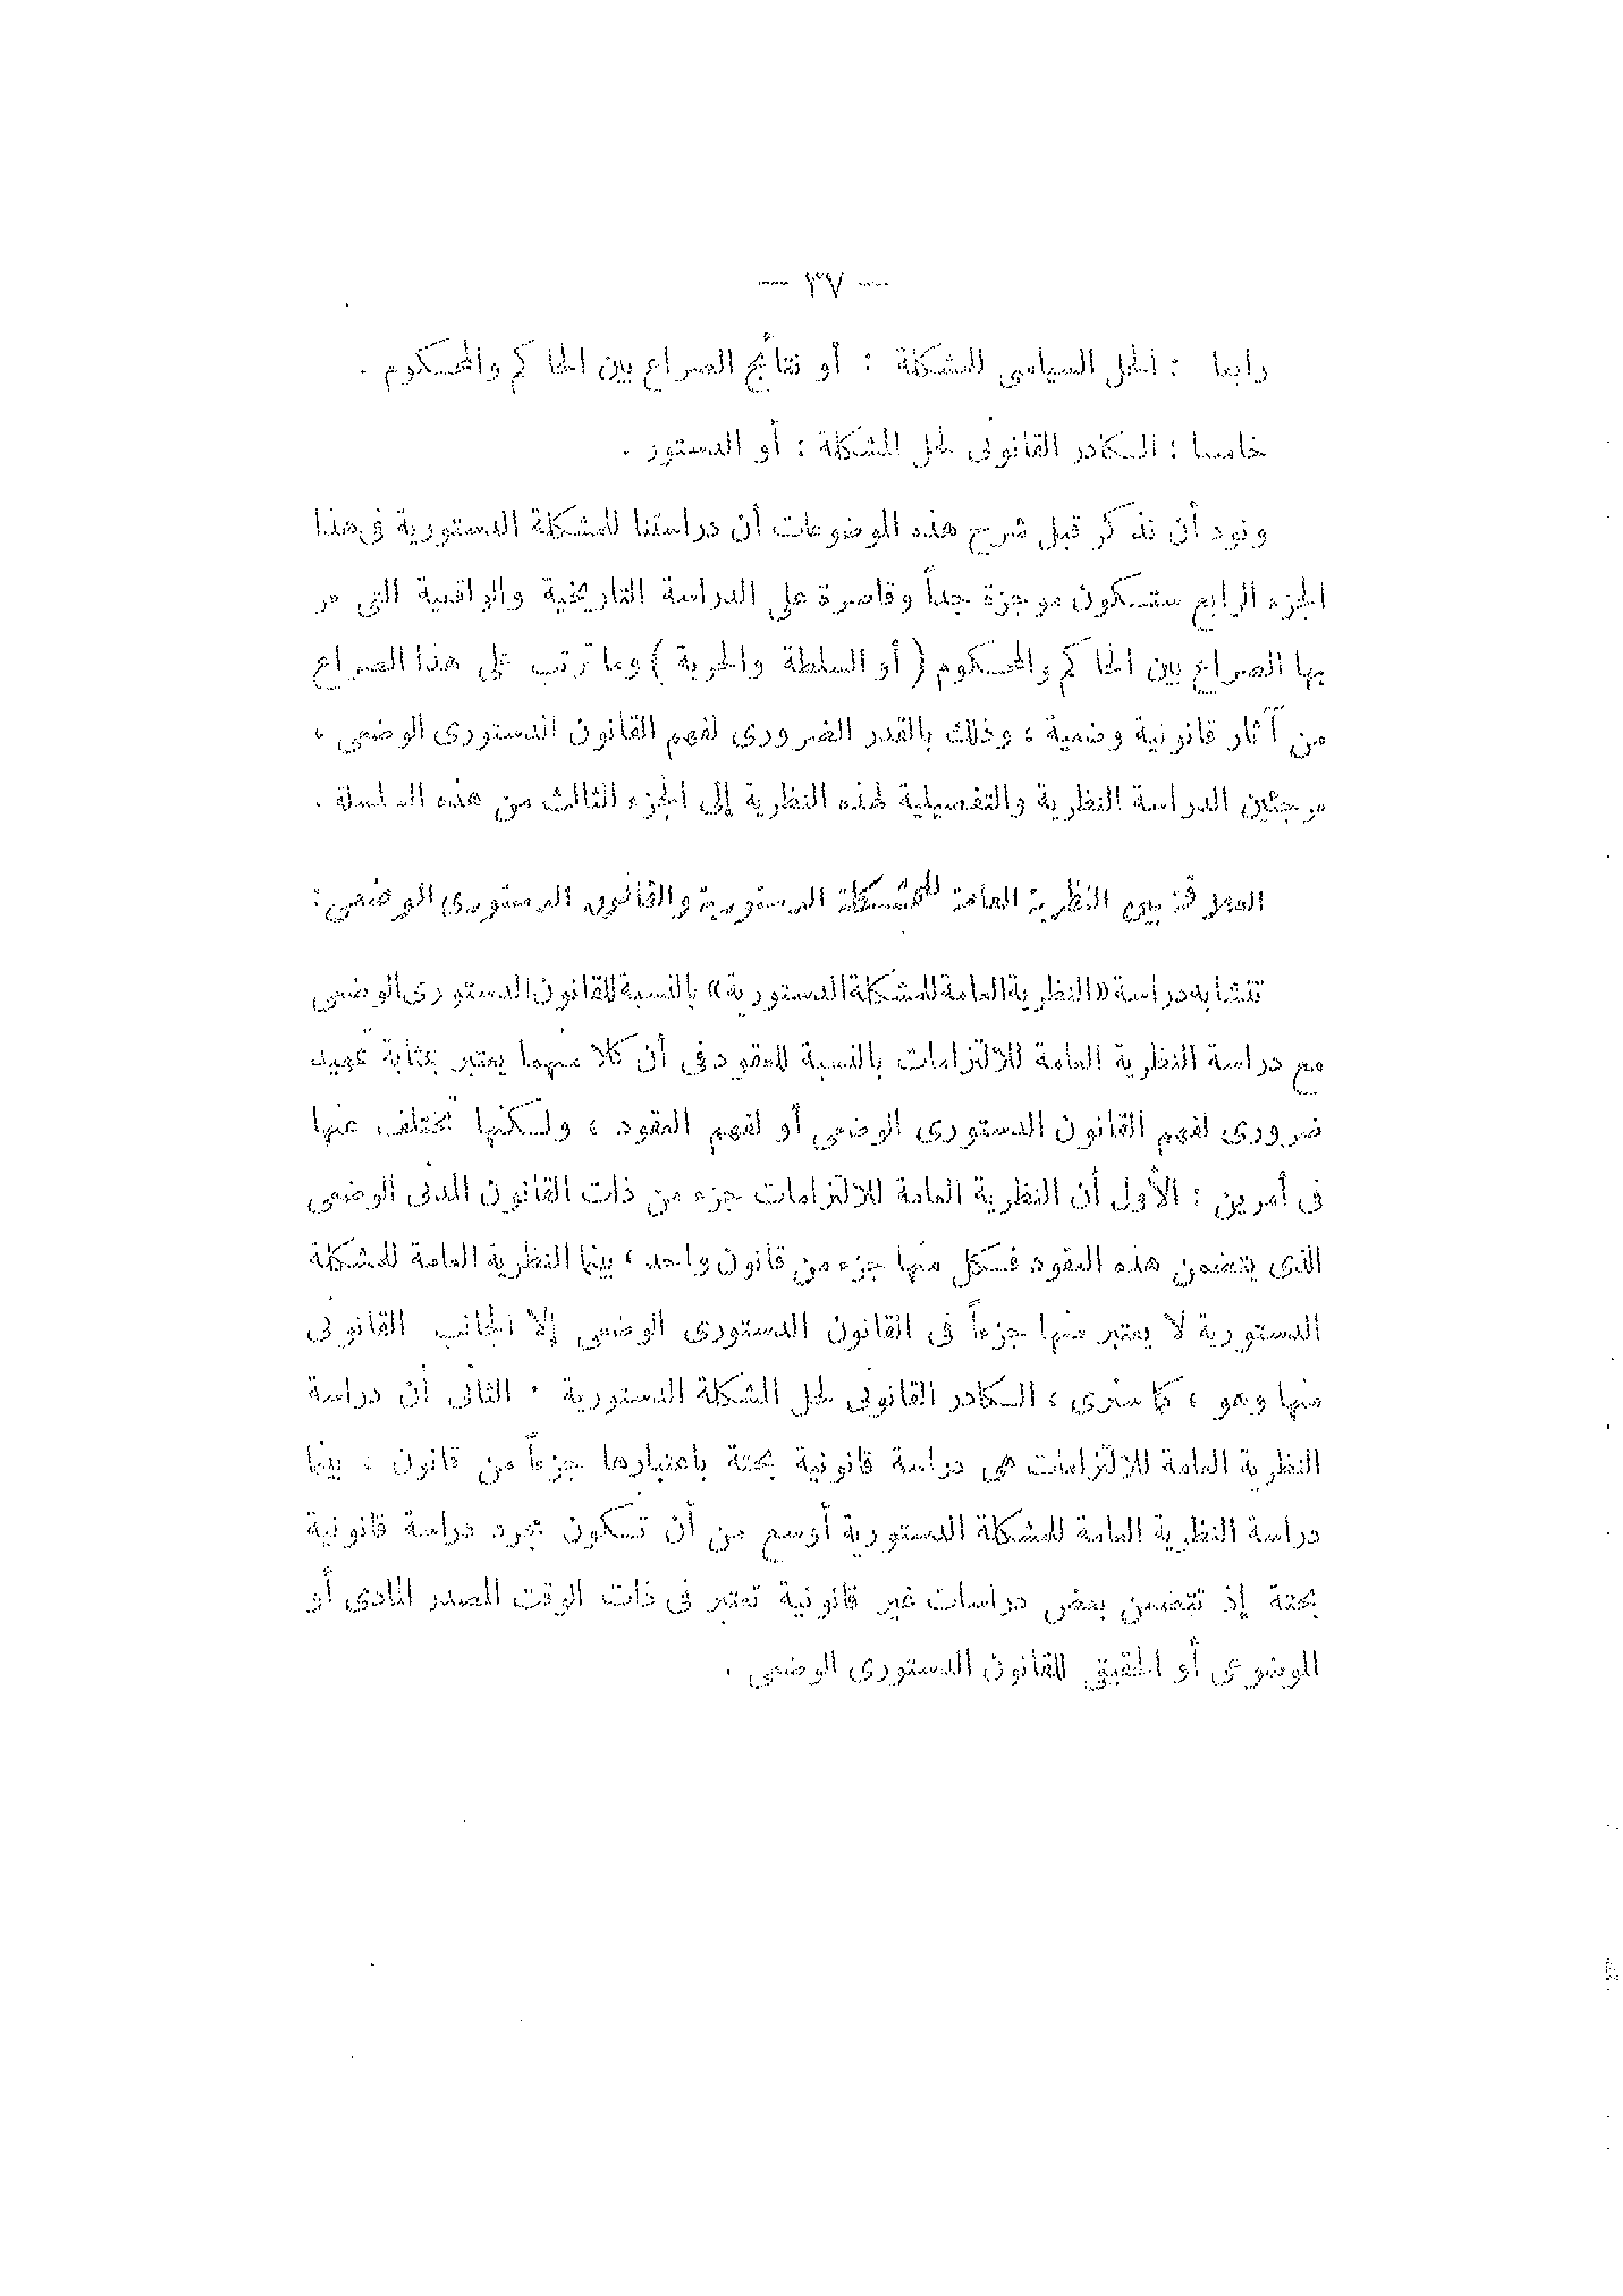 — ٣٧ —
رابعا : الحل السياسى للمشكلة : أو نتائج الصراع بين الحاكم والمحكوم .
خامسا : الكادر القانونى لحل المشكلة : أو الدستور .
ونود أن نذكر قبل شرح هذه الموضوعات أن دراستنا للمشكلة الدستورية فى هذا
الجزء الرابع ستكون موجزة جداً وقاصرة على الدراسة التاريخية والواقعية التى مر
بها الصراع بين الحاكم والمحكوم ( أو السلطة والحرية ) وما ترتب على هذا الصراع
من آثار قانونية وضعية ، وذلك بالقدر الضرورى لفهم القانون الدستورى الوضعى ،
مرجئين الدراسة النظرية والتفصيلية لهذه النظرية إلى الجزء الثالث من هذه السلسلة .
العلاقة بين النظرية العامة للمشكلة الدستورية والقانون الدستورى الوضعى :
تتشابه دراسة «النظرية العامة للمشكلة الدستورية» بالنسبة للقانون الدستورى الوضعى
مع دراسة النظرية العامة للالتزامات بالنسبة للعقود فى أن كلا منهما يعتبر بمثابة تمهيد
ضرورى لفهم القانون الدستورى الوضعى أو لفهم العقود ، ولكنها تختلف عنها
فى أمرين : الأول أن النظرية العامة للالتزامات جزء من ذات القانون المدنى الوضعى
الذى يتضمن هذه العقود فكل منها جزء من قانون واحد ، بينما النظرية العامة للمشكلة
الدستورية لا يعتبر منها جزءاً فى القانون الدستورى الوضعى إلا الجانب القانونى
منها وهو ، كما سنرى ، الكادر القانونى لحل المشكلة الدستورية . الثانى أن دراسة
النظرية العامة للالتزامات هى دراسة قانونية بحتة باعتبارها جزءاً من قانون ، بينما
دراسة النظرية العامة للمشكلة الدستورية أوسع من أن تكون مجرد دراسة قانونية
بحتة إذ تتضمن بعض دراسات غير قانونية تعتبر فى ذات الوقت المصدر المادى أو
الموضوعى أو الحقيقى للقانون الدستورى الوضعى .